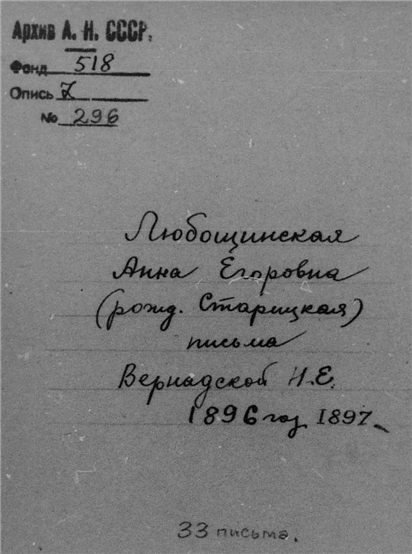 Архив А. Н. СССР.
Фонд 518
Опись 7
№ 296
Любощинская
Анна Егоровна
(рожд. Старицкая)
письма
Вернадской Н.Е.
1896 год 1897
33 письма.